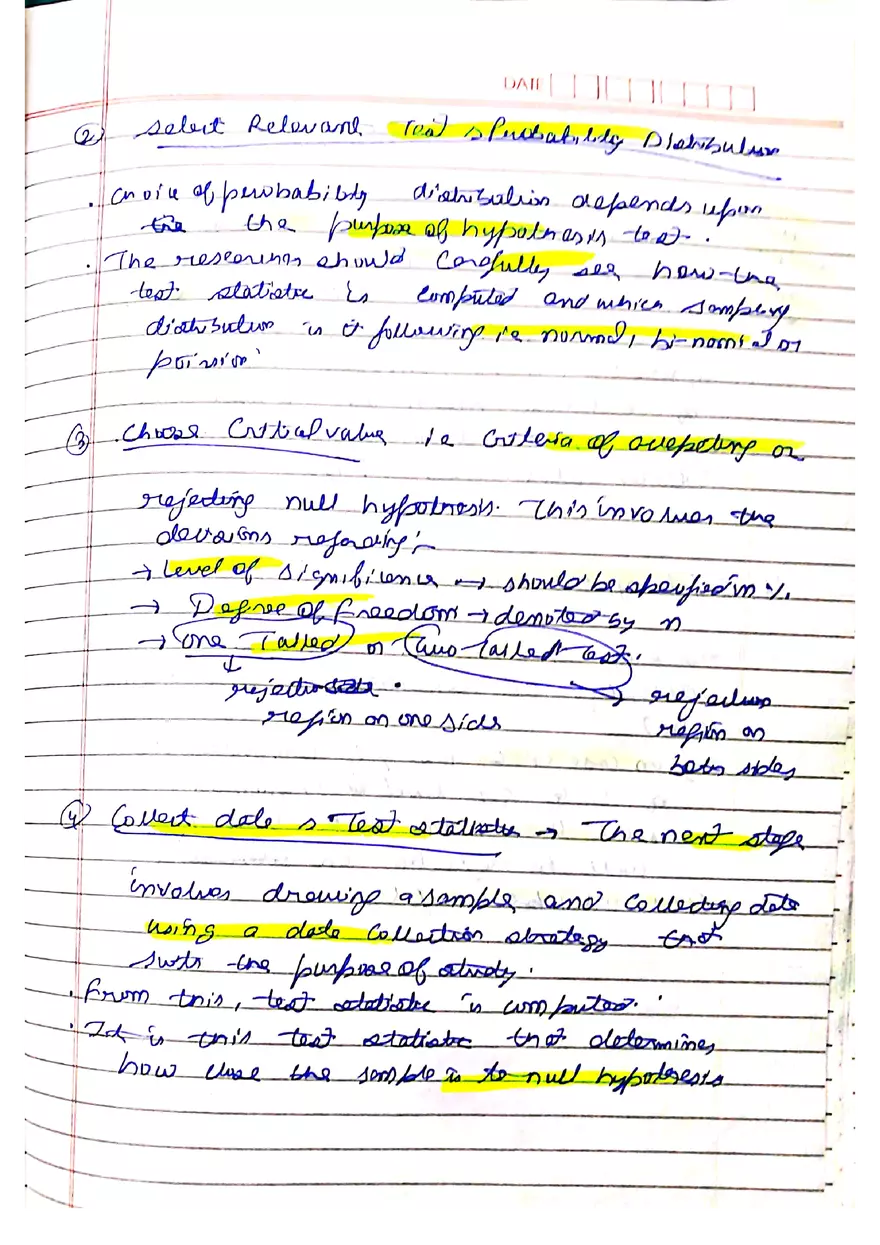 DATE
② Select Relevant Test & Probability Distribution
. Choice of probability distribution depends upon
the the purpose of hypothesis test.
. The researcher should carefully see how the
test statistic is computed and which sampling
distribution is it following i.e normal, bi-nomial or
poission
③ . Choose Critical value i.e Criteria of accepting or
rejecting null hypothesis. This involves the
decisions regarding :-
→ Level of Significence → should be specified in %.
→ Degree of Freedom → denoted by n
→ One Tailed or Two-Tailed test.
↓
rejection . → rejection
region on one side region on
both sides
④ Collect data & Test statistic → The next stage
involves drawing a sample and collecting data
using a data collection strategy that
suits the purpose of study.
. From this, test statistic is computed.
. It is this test statistic that determines
how close the sample is to null hypothesis